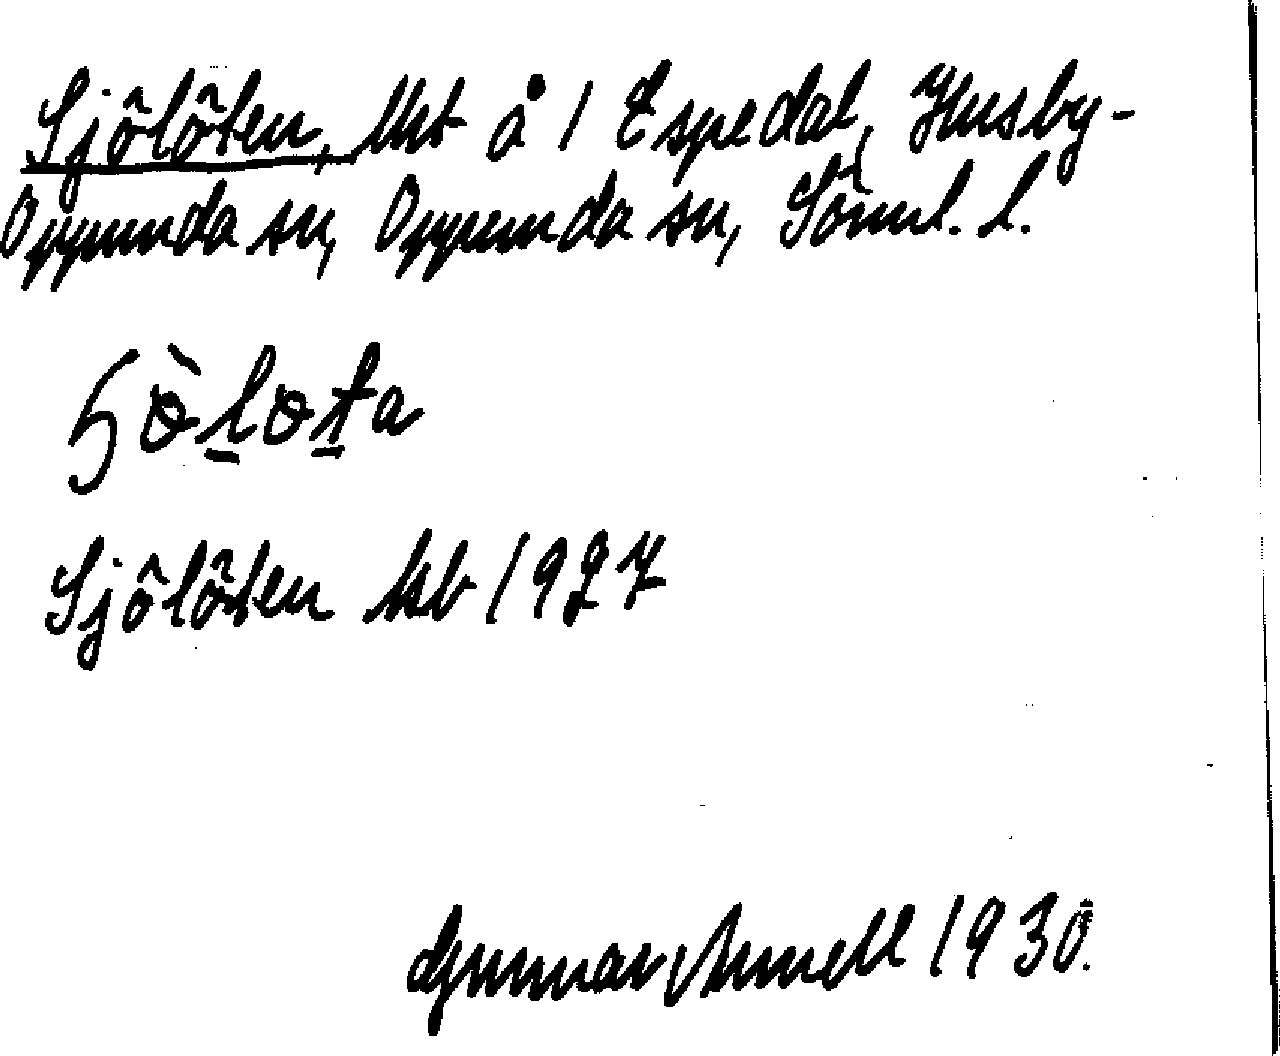 Sjölöten, lht å 1 Espedal, Husby-
Oppunda sn, Oppunda sn, Söml. l.
ɧò̵lo̵ta
Sjölöten ksb 1927
Gunnar Amell 1930.